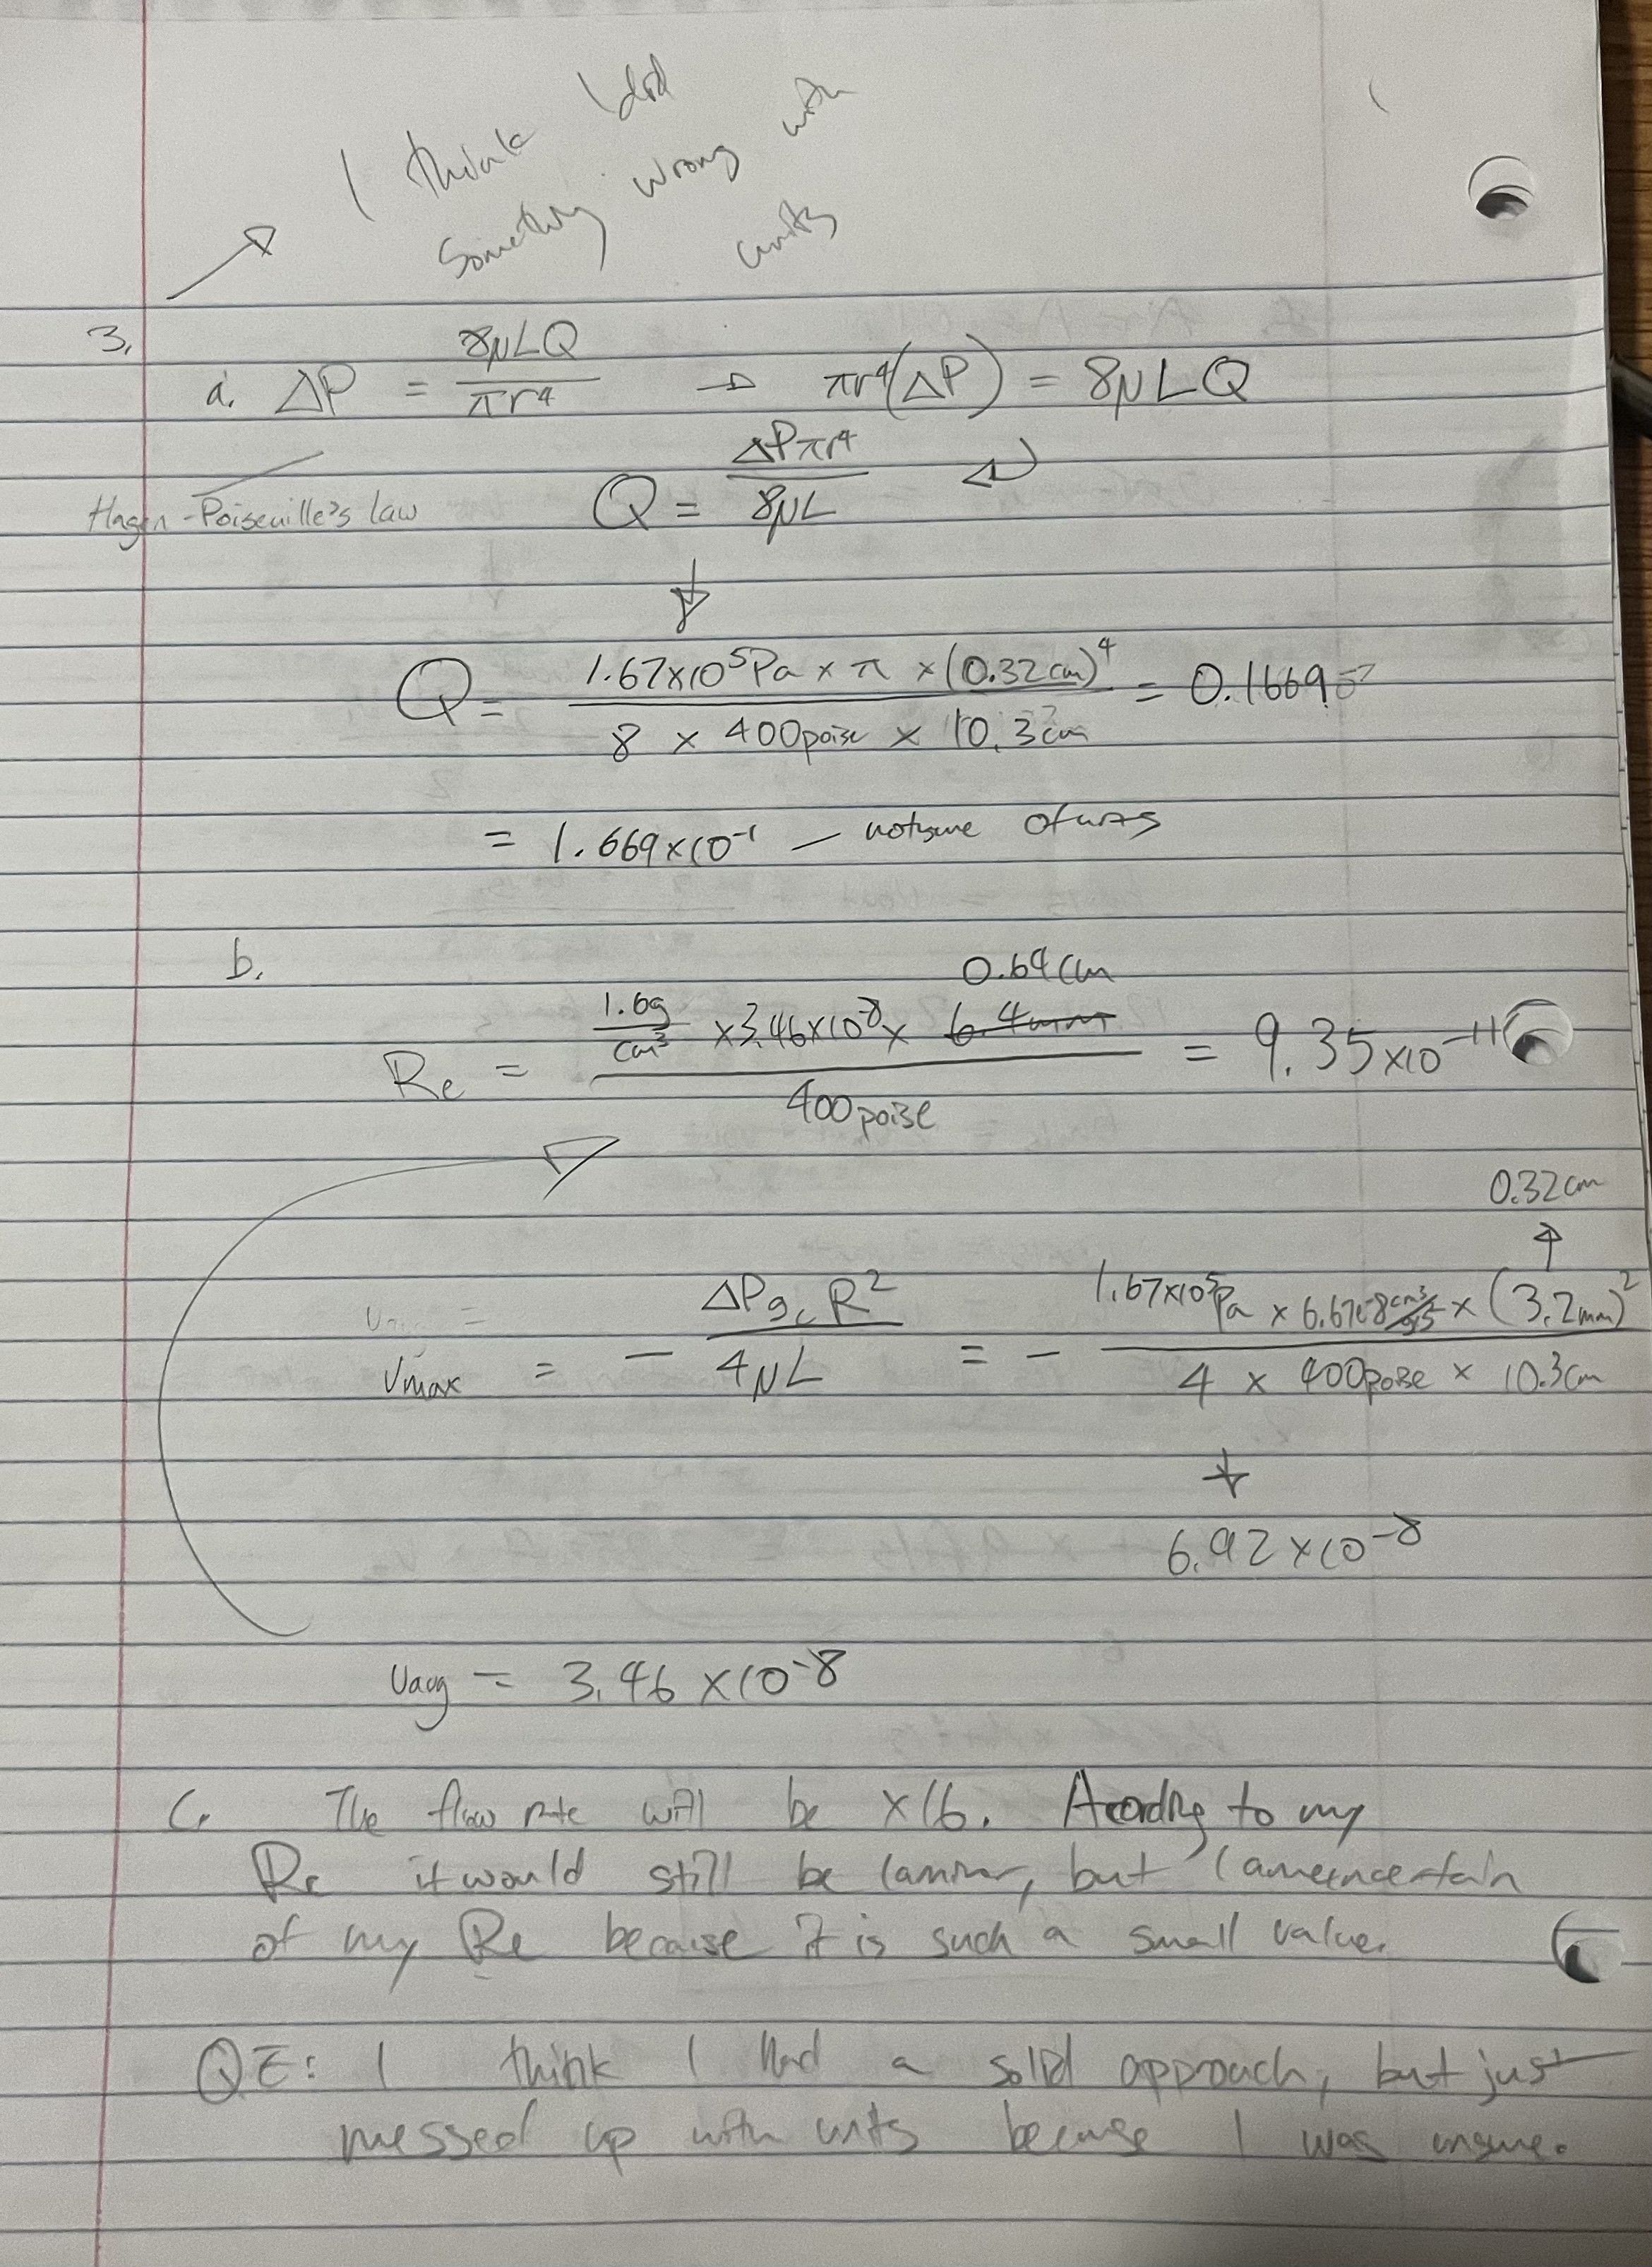 I think I did
something wrong with
units
3.
a. ΔP = 8μLQ / πr⁴ → πr⁴(ΔP) = 8μLQ
Hagen-Poiseuille's law
Q = ΔPπr⁴ / 8μL
Q = 1.67×10⁵Pa × π × (0.32cm)⁴ / 8 × 400poise × 10.3cm = 0.1669
= 1.669×10⁻¹ — not sure of units
b.
0.64cm
Re = 1.6g/cm³ × 3.46×10⁻⁸ × 6.4mm / 400poise = 9.35×10⁻¹¹
0.32cm
↑
Vmax = - ΔPg꜀R² / 4μL = - 1.67×10⁵Pa × 6.67e-8 cm³/gs² × (3.2mm)² / 4 × 400poise × 10.3cm
↓
6.92×10⁻⁸
Vavg = 3.46×10⁻⁸
C. The flow rate will be ×16. Acording to my
Re it would still be laminar, but I am uncertain
of my Re because it is such a small value.
QE: I think I had a solid approach, but just
messed up with units because I was unsure.